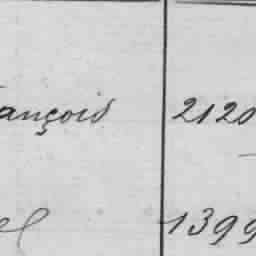 ançois 2120
el 1399